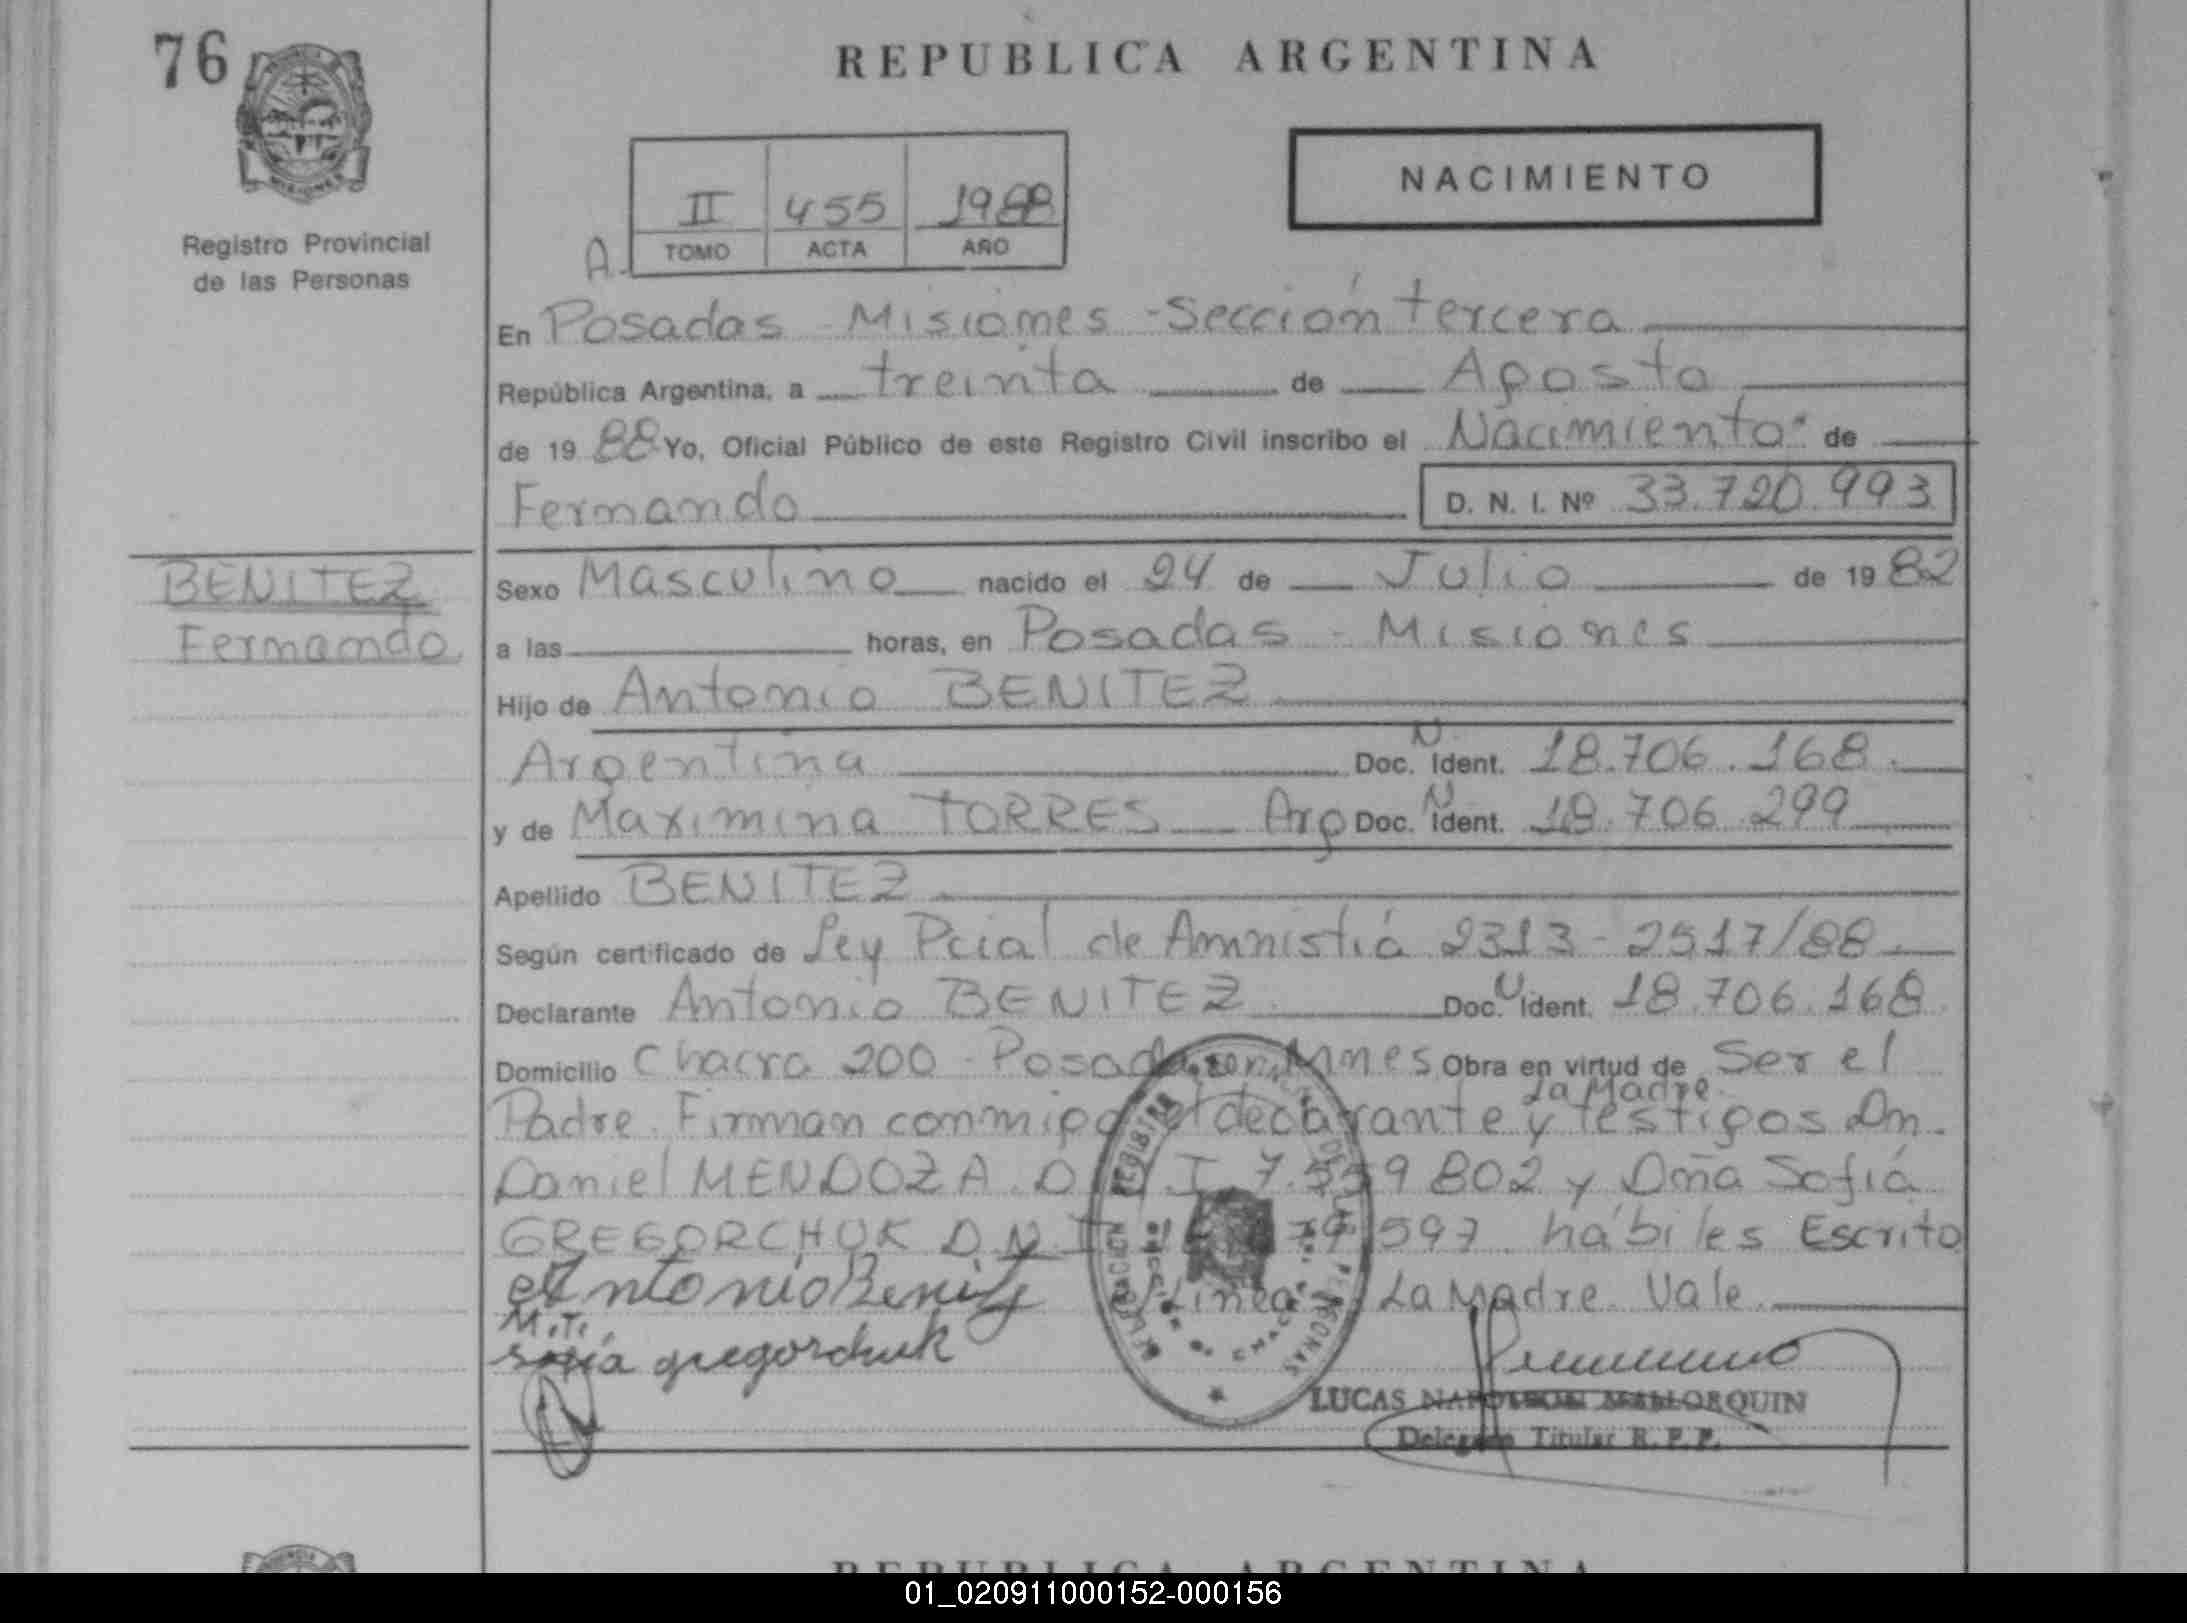 76
REPUBLICA ARGENTINA
MISIONES
NACIMIENTO
II 455 1988
A. TOMO ACTA AÑO
Registro Provincial
de las Personas
En Posadas - Misiones - Sección tercera
República Argentina, a treinta de Agosto
de 19 88 Yo, Oficial Público de este Registro Civil inscribo el Nacimiento de
Fernando D. N. I. Nº 33.720.993
BENITEZ
Fernando
Sexo Masculino nacido el 24 de Julio de 19 82
a las horas, en Posadas - Misiones
Hijo de Antonio BENITEZ
Argentina Doc. N. Ident. 18.706.168
y de Maximina TORRES Arg Doc. N Ident. 18.706.299
Apellido BENITEZ
Según certificado de Ley Pcial de Amnistiá 2313 - 2517/88
Declarante Antonio BENITEZ Doc. N Ident. 18.706.168
Domicilio Chacra 200 - Posadas Mnes Obra en virtud de Ser el
la Madre
Padre. Firman conmigo el declarante y testigos Dn.
Daniel MENDOZA D. I 7.559 802 y Dña Sofiá
GREGORCHUK D.N.I 597 hábiles Escrito
Antonio Benitez
e/Linea La Madre Vale
M.T.
Sofia gregorchuk
LUCAS NAPOLEON MALLORQUIN
Delegado Titular R.P.P.
REPUBLICA ARGENTINA
01_020911000152-000156